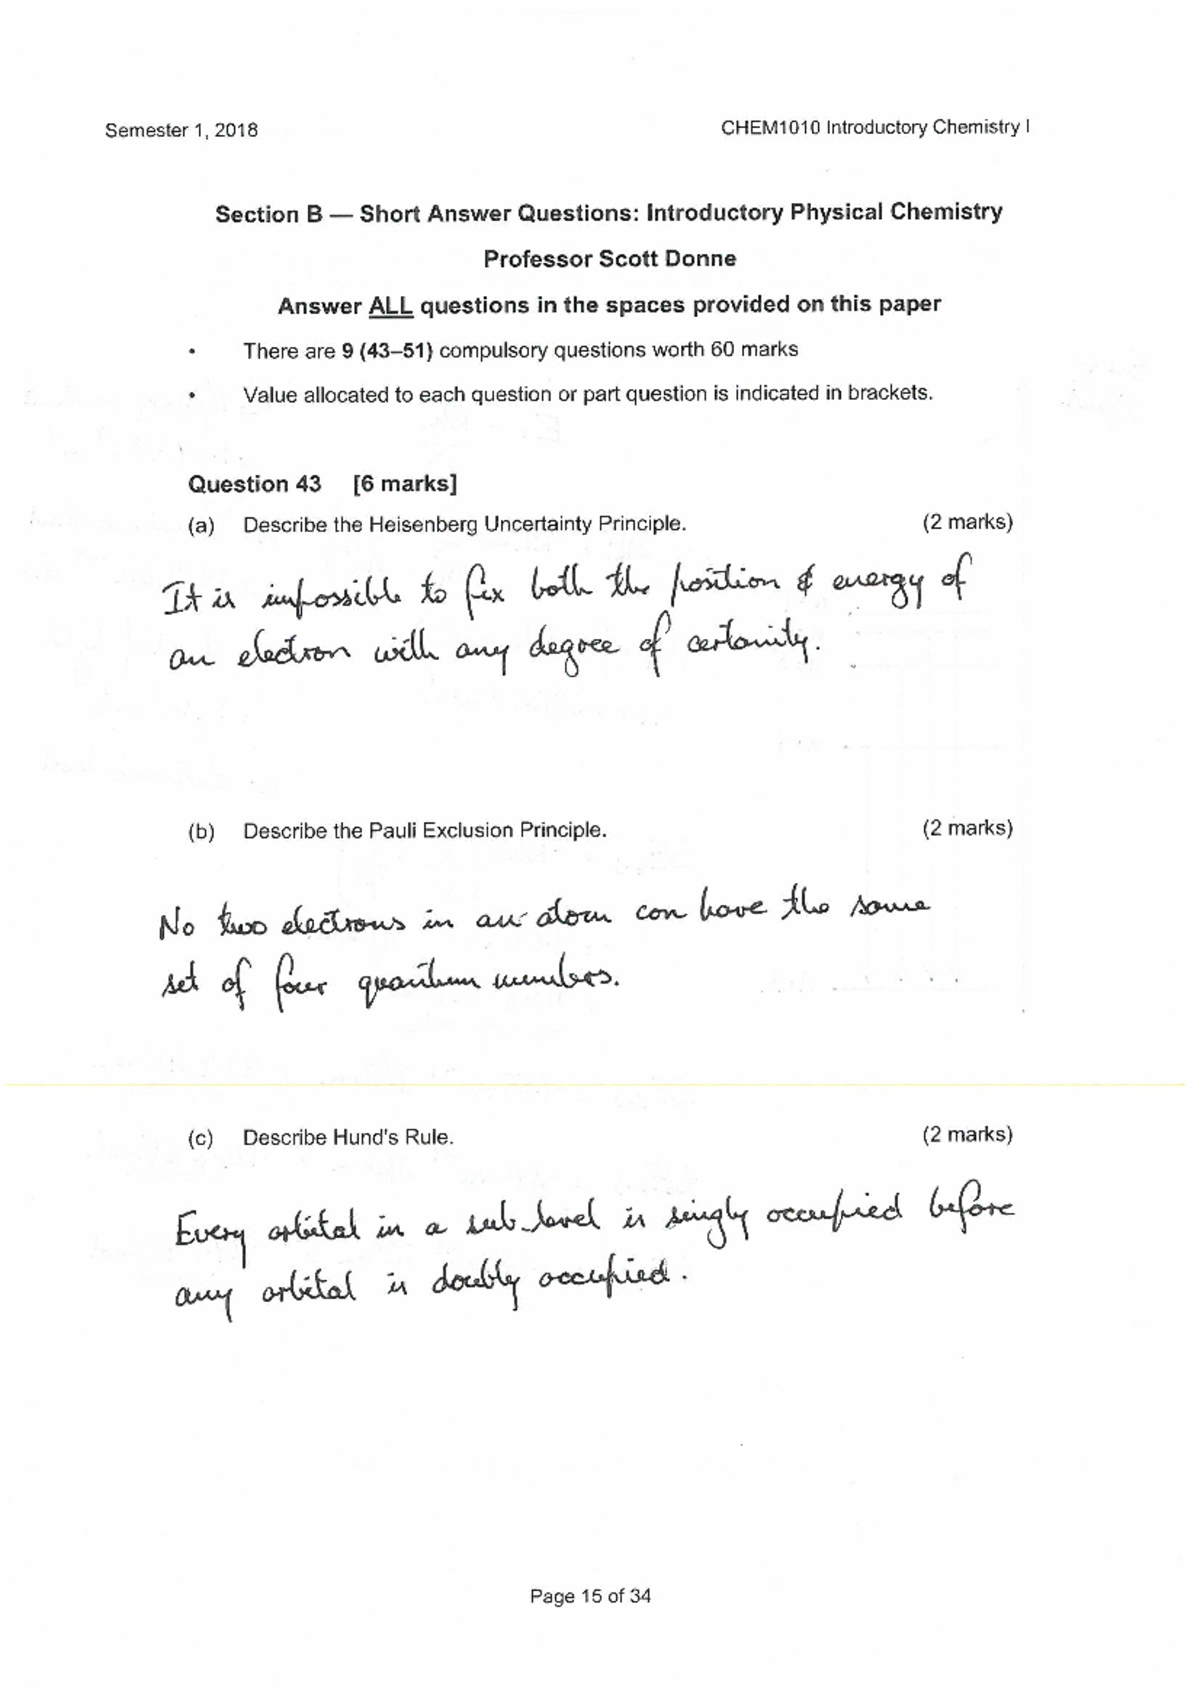 Semester 1, 2018
CHEM1010 Introductory Chemistry I
Section B — Short Answer Questions: Introductory Physical Chemistry
Professor Scott Donne
Answer ALL questions in the spaces provided on this paper
• There are 9 (43–51) compulsory questions worth 60 marks
• Value allocated to each question or part question is indicated in brackets.
Question 43 [6 marks]
(a) Describe the Heisenberg Uncertainty Principle. (2 marks)
It is impossible to fix both the position & energy of
an electron with any degree of certainity.
(b) Describe the Pauli Exclusion Principle. (2 marks)
No two electrons in an atom can have the same
set of four quantum numbers.
(c) Describe Hund's Rule. (2 marks)
Every orbital in a sub-level is singly occupied before
any orbital is doubly occupied.
Page 15 of 34